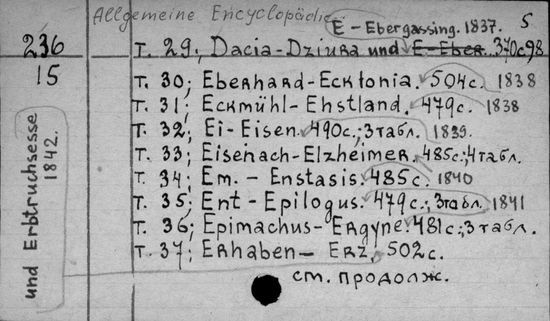 Allgemeine Encyclopädie 5
E – Ebergassing. 1837.
236 Т. 29; Dacia-Dziura und E-Eber. 370с.98
15
Т. 30; Eberhard-Ecklonia. 504с. 1838
Т. 31; Eckmühl-Ehstland. 479с. 1838
Т. 32; Ei-Eisen. 490с.; 3табл. 1839.
Т. 33; Eisenach-Elzheimer. 485с.; 4табл.
Т. 34; Em. – Enstasis. 485с. 1840
Т. 35; Ent-Epilogus. 479с.; 3табл. 1841
Т. 36; Epimachus-Ergyne. 481с.; 3табл.
Т. 37; Erhaben – Erz, 502с.
см. продолж.
und Erbtruchsesse
1842.